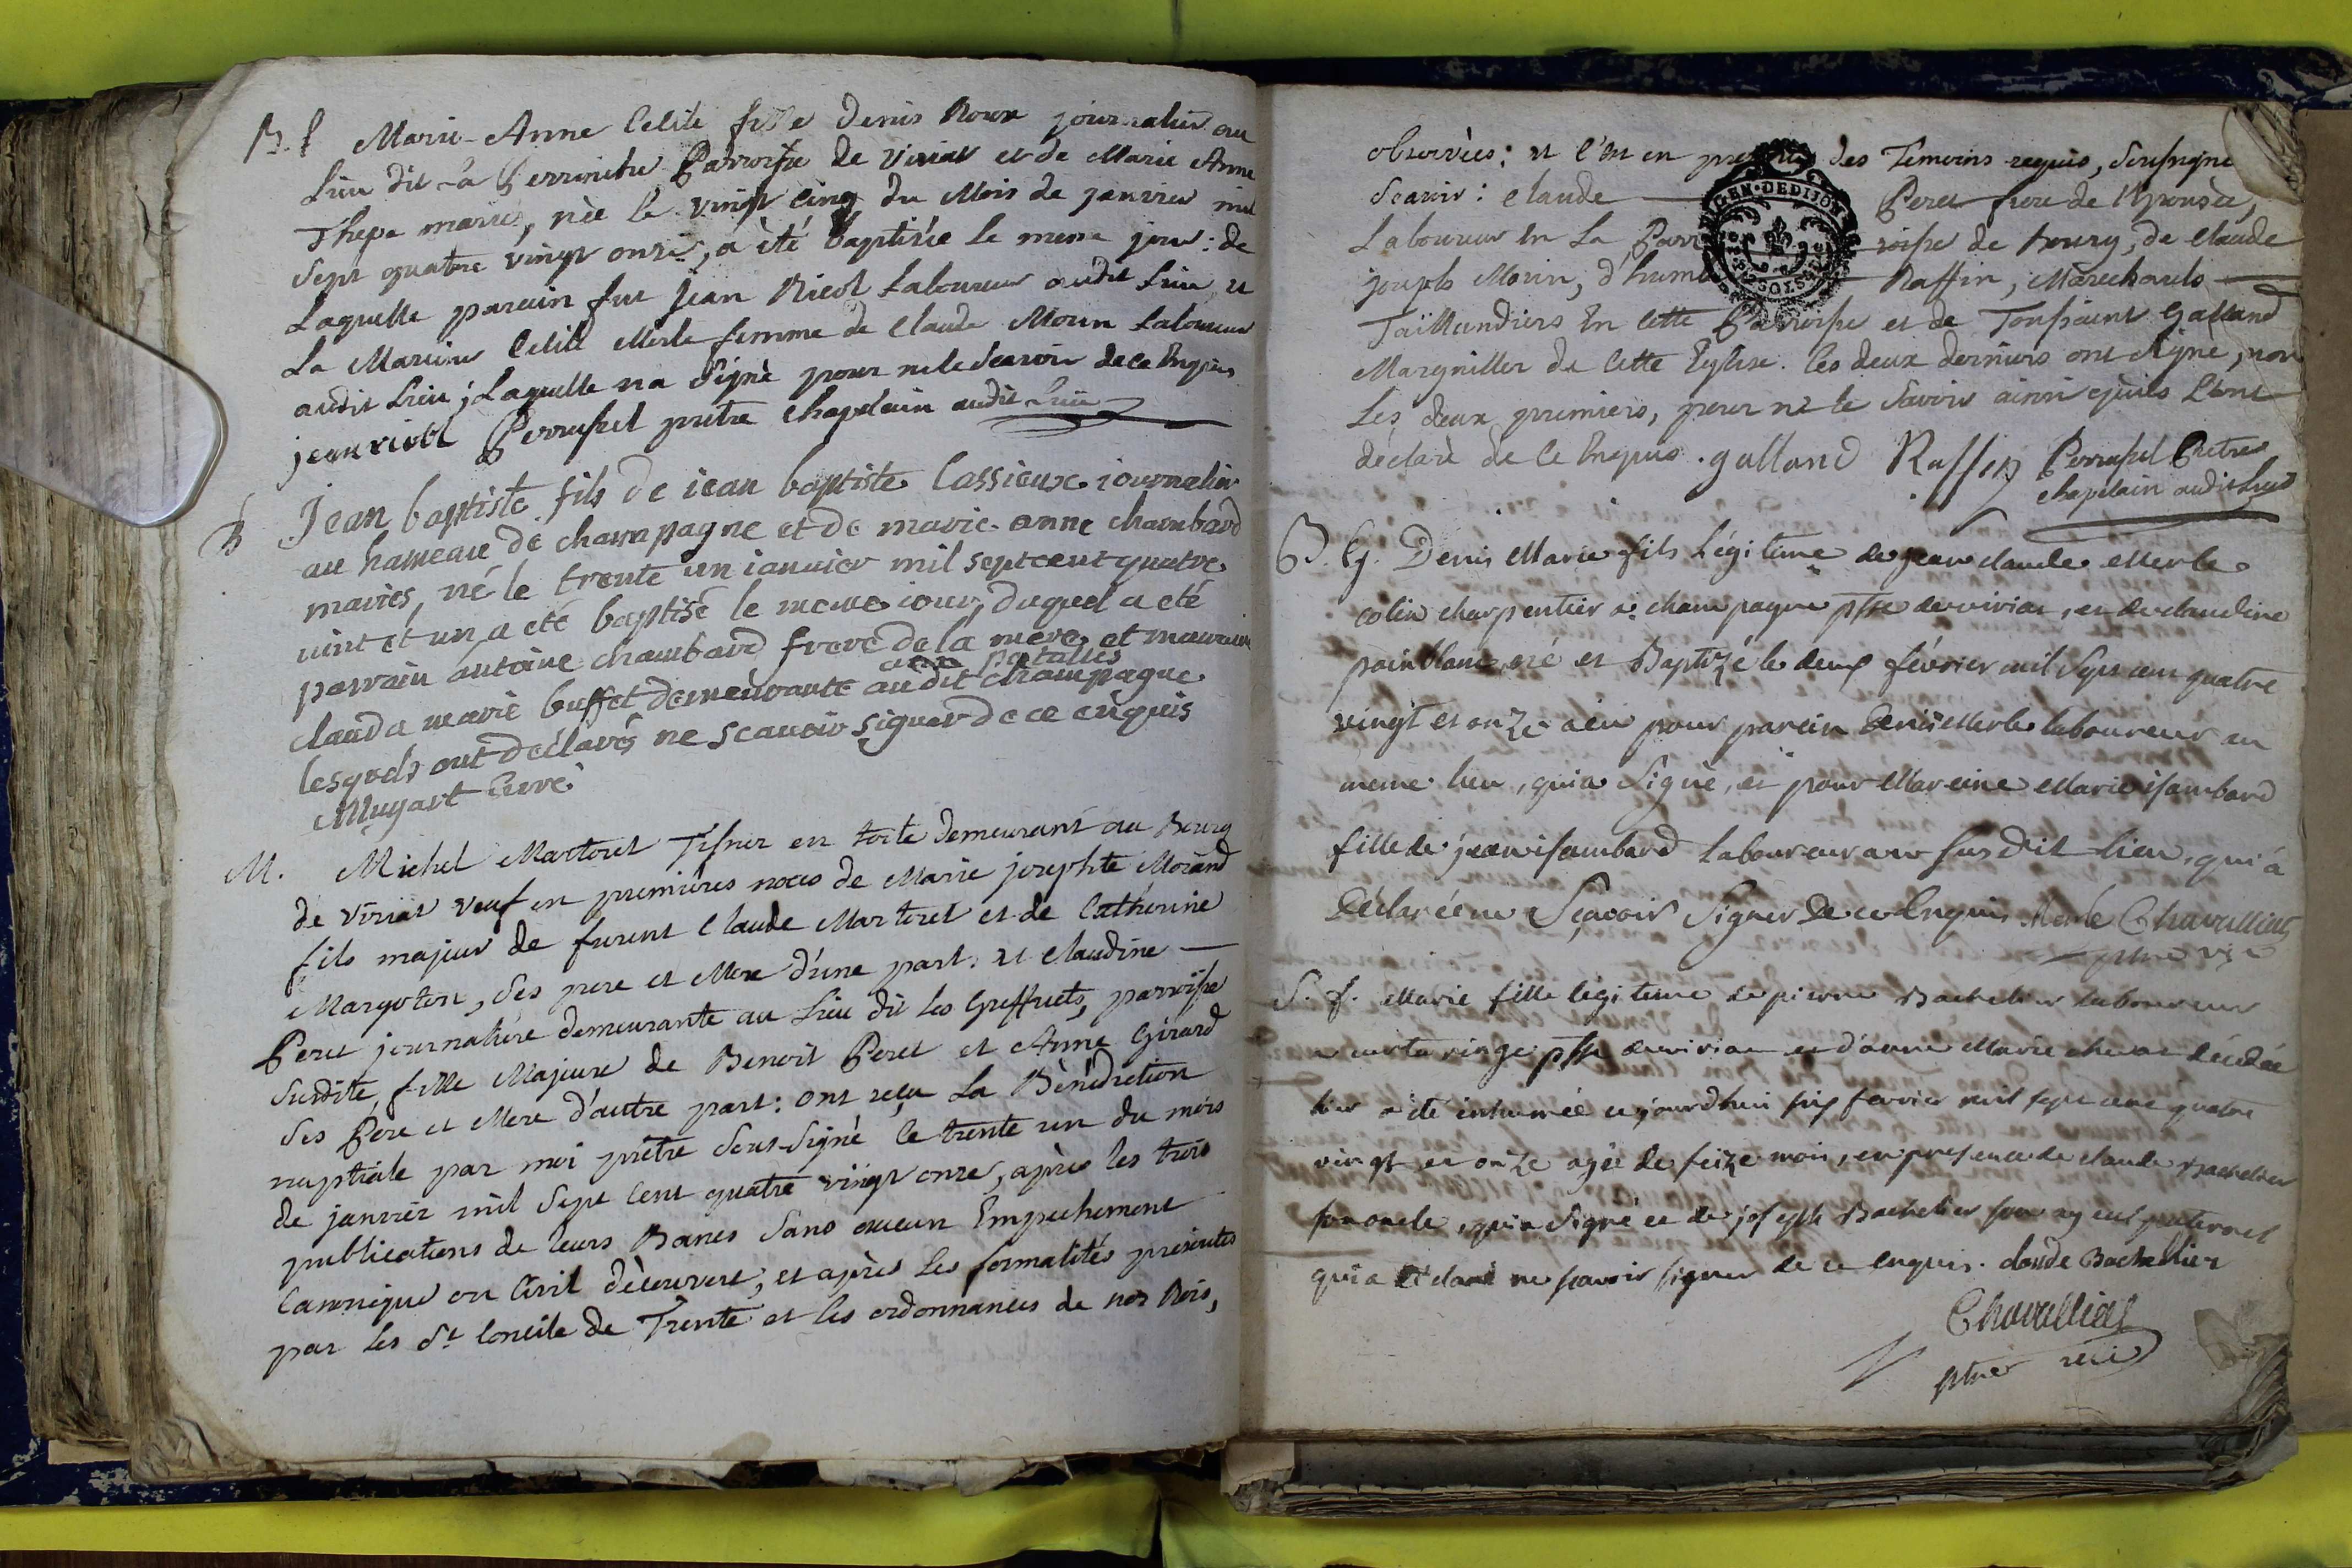 B. f Marie-Anne Celile fille Denis Roux journalier au
Lieu dit La Perrintre Parroisse de Viriat et de Marie Anne
Thepe mariés, née le vingt cinq du Mois de janvier mil
Sept quatre vingt onze, a été baptisée le meme jour: de
Laquelle parain fut jean Nicol Laboureur audit Lieu et
La Mareine Celile Merle femme de Claude Morin Laboureur
audit Lieu; Laquelle n'a Signé pour ne le Scavoir de ce Enquis
jean Perrussel prêtre chapelain audit Lieu
B Jean baptiste fils de iean baptiste Cassieux iournalier
au hameau de champagne et de marie-anne chambard
maries, né le trente un ianvier mil sept cent quatre
vint et un, a eté baptisé le meme iour, duquel a eté
parrain antoine chambard frere de la mere, et mauraine
clauda marie buffet demeurante audit champagne
lesquels ont déclarés ne scauoir signer de ce enquis
Mugart Curé
M. Michel Martoret Tissier en toile demeurant au Bourg
de Viriat veuf en premiéres noces de Marie josephte Morand
fils majeur de furent Claude Martoret et de Cathérine
Margoton, Ses pere et Mere d'une part. et Claudine
Peret journaliére demeurante au Lieu dit les Greffets, parroisse
Susdite, fille Majeure de Benoit Peret et Anne Girard
Ses Pere et Mere d'autre part: ont reçu La Bénédiction
nuptiale par moi prêtre Sous-Signé le trente un du mois
de janvier mil Sept Cent quatre vingt onze, après les trois
publications de leurs Bancs Sans aucun Empechement
Canonique ou Civil découvert, et après les formalités présentes
par les St Concile de Trente et les ordonnances de nos Rois,
observées; et c'est en presence des Temoins requis, Soussigne
Scavoir: Claude Peret frere de l'Epousée,
GEN. DE DIJON
Laboureur en La Parroisse de bourg, de Claude
joseph Morin, d'humb Raffin, Marechauls
Taillandiers En cette Parroisse et de Toussaint Galland
Marguiller de Cette Eglise. les deux derniers ont signé, non
Les deux premiers, pour ne le Savoir ainsi qu'ils l'ont
déclaré de ce Enquis. galland Raffin Perrussel Prêtre
chapelain audit Lieu
B. G. Denis Marie fils Légitime de jean claude Merle
colin charpentier à champagne psse de viriat, et de claudine
painblanc, né et Baptizé le deux février mil Sept cen quatre
vingt et onze a eu pour parein Denis Merle laboureur au
meme lieu, qui a Signé, et pour Mareine Marie isambard
fille de jean isambard Laboureur au susdit lieu, qui a
Déclaréé ne Sçavoir Signer De ce Enquis. Merle Chavallier
S. f. Marie fille légitime de pierre Bachelier laboureur
psse de viriat et d'anne Marie décédée
hier a été inhumée ce jourd'hui six fevrier mil sept cent quatre
vingt et onze agée de seize mois, en presence de claude Bachelier
son oncle, qui a Signé et de joseph Bachelier son ayeul paternel
qui a declaré ne savoir signer de ce enquis. claude Bachellier
Chavallier
ptre